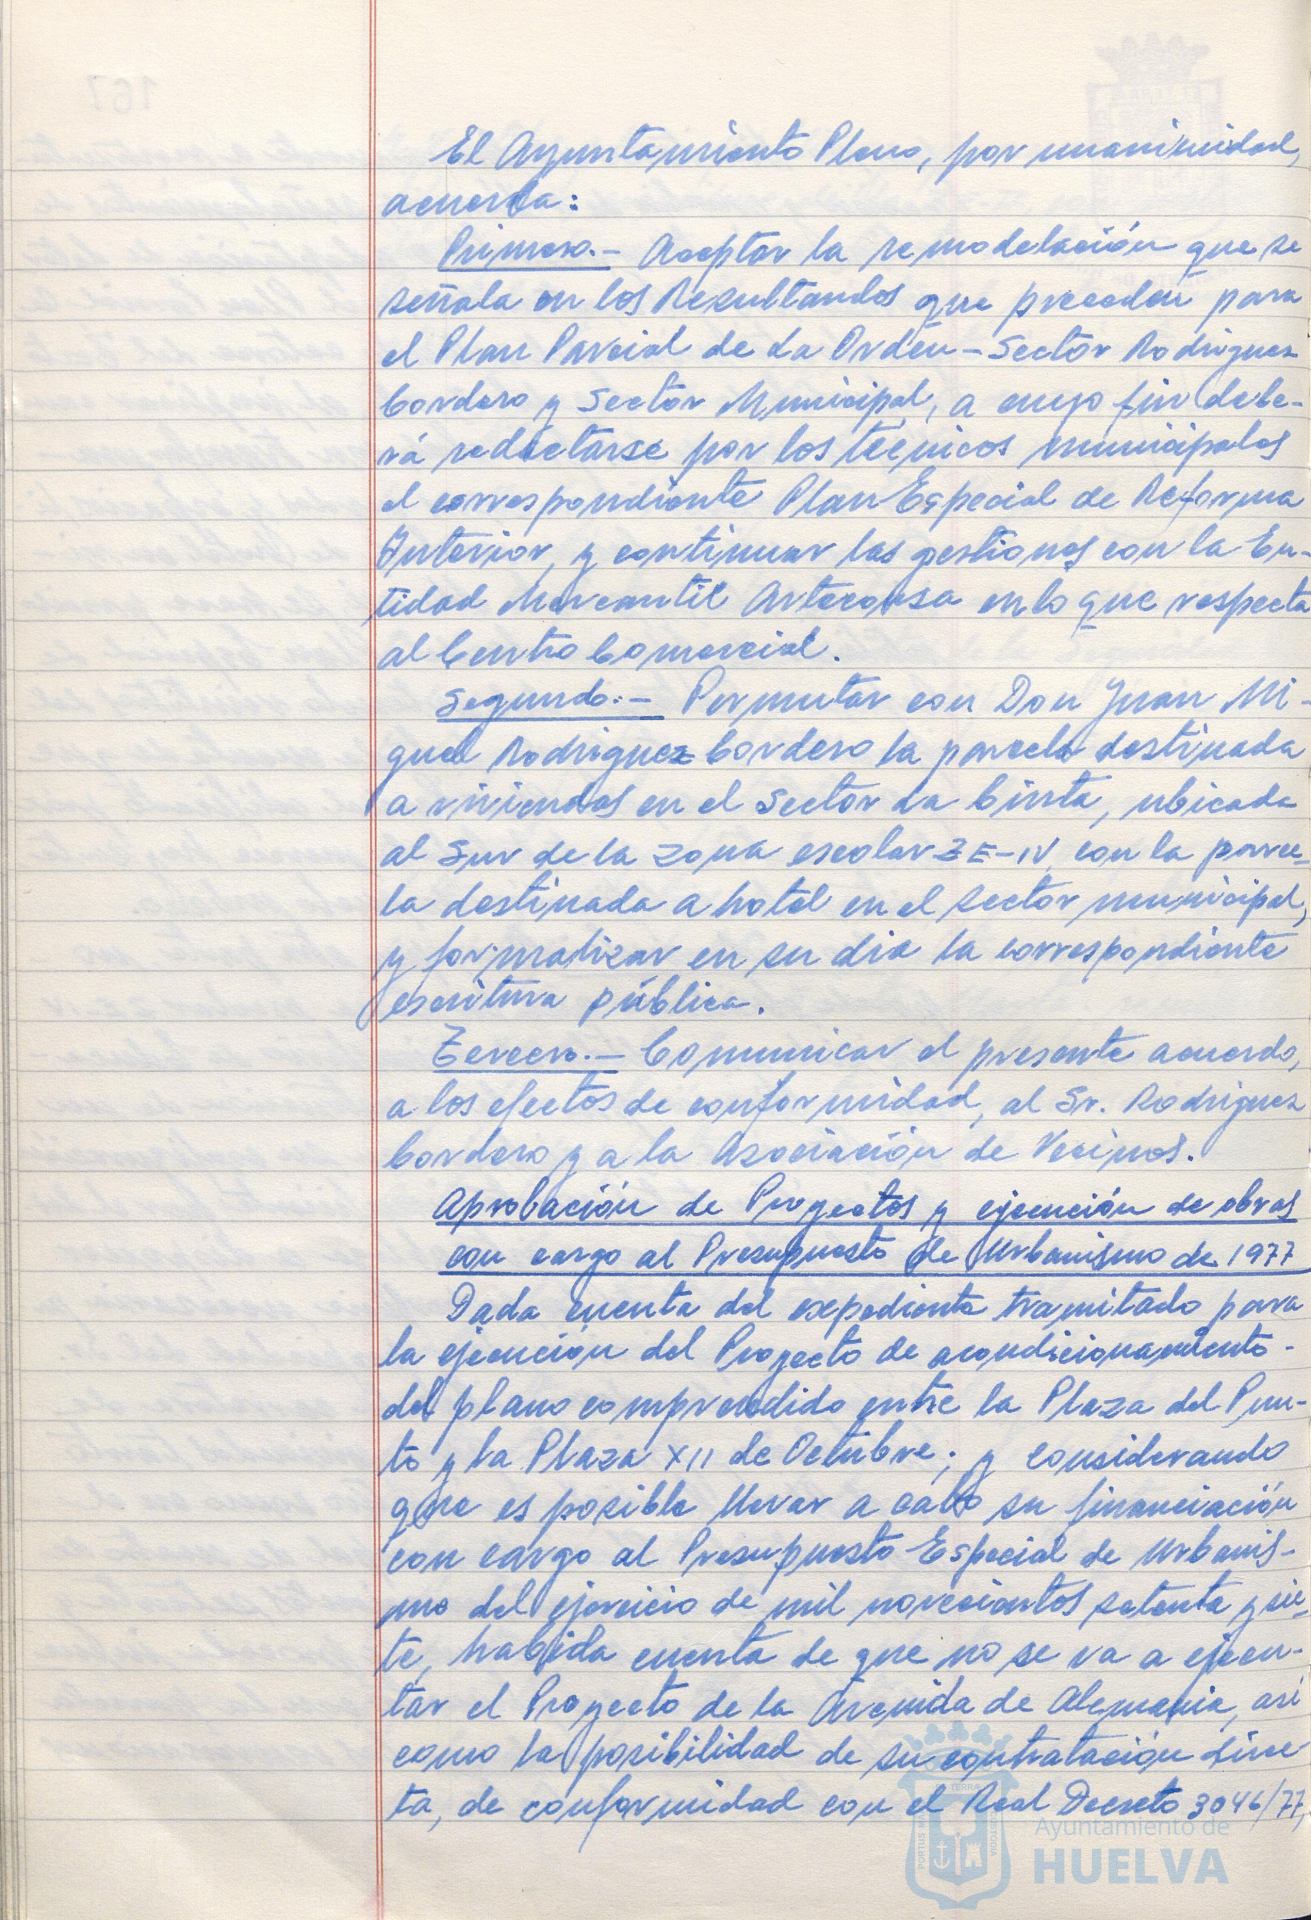 El Ayuntamiento Pleno, por unanimidad,
acuerda:
Primero.- Aceptar la remodelación que se
señala en los Resultandos que preceden para
el Plan Parcial de La Orden-Sector Rodriguez
Cordero y Sector Municipal, a cuyo fin debe-
rá redactarse por los técnicos municipales
el correspondiente Plan Especial de Reforma
Interior, y continuar las gestiones con la En-
tidad Mercantil Arteconsa en lo que respecta
al Centro Comercial.
Segundo.- Permutar con Don Juan Mi-
guel Rodriguez Cordero la parcela destinada
a viviendas en el Sector La Cinta, ubicada
al Sur de la zona escolar ZE-IV, con la parce-
la destinada a hotel en el sector municipal,
y formalizar en su dia la correspondiente
escritura pública.
Tercero.- Comunicar el presente acuerdo,
a los efectos de conformidad, al Sr. Rodriguez
Cordero y a la Asociación de Vecinos.
Aprobación de Proyectos y ejecución de obras
con cargo al Presupuesto de Urbanismo de 1977
Dada cuenta del expediente tramitado para
la ejecución del Proyecto de acondicionamiento
del plano comprendido entre la Plaza del Pun-
to y la Plaza XII de Octubre; y considerando
que es posible llevar a cabo su financiación
con cargo al Presupuesto Especial de Urbanis-
mo del ejercicio de mil novecientos setenta y sie-
te, habida cuenta de que no se va a ejecu-
tar el Proyecto de la Avenida de Alemania, asi
como la posibilidad de su contratación direc-
ta, de conformidad con el Real Decreto 3046/77,
Ayuntamiento de
HUELVA